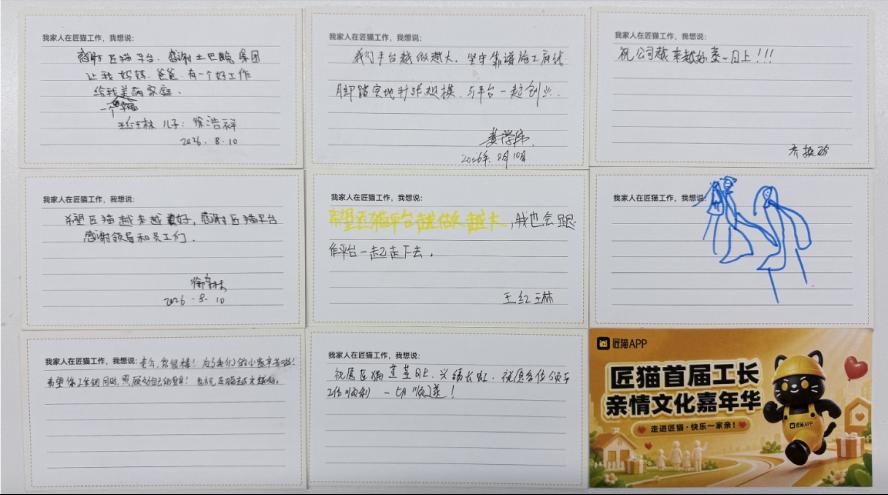 我家人在匠猫工作，我想说：
感谢匠猫平台、感谢土巴兔集团
让我妈妈、爸爸有一个好工作
给我美满家庭.
一个幸福
儿子：徐浩祥
2026.8.10
我家人在匠猫工作，我想说：
我们平台越做越大，坚守靠谱施工底线
脚踏实地扩张规模，与平台一起创业.
2026年8月10日
我家人在匠猫工作，我想说：
祝公司越来越好蒸一日上！！！
我家人在匠猫工作，我想说：
希望匠猫越来越好，感谢匠猫平台
感谢领导和员工们.
2026.8.10
我家人在匠猫工作，我想说：
希望匠猫平台越做越大，我也会跟
作平台一起走下去.
王红林
我家人在匠猫工作，我想说：
我家人在匠猫工作，我想说：
老公，您很棒！为了我们的小家辛苦啦！
希望你工作的同时，照顾好自己的身体！也祝匠猫越来越好.
我家人在匠猫工作，我想说：
祝愿匠猫蒸蒸日上、兴旺长虹、祝愿各位领导
工作顺利 一切顺遂！
匠猫APP
匠猫首届工长
亲情文化嘉年华
走进匠猫·快乐一家亲！
匠猫APP